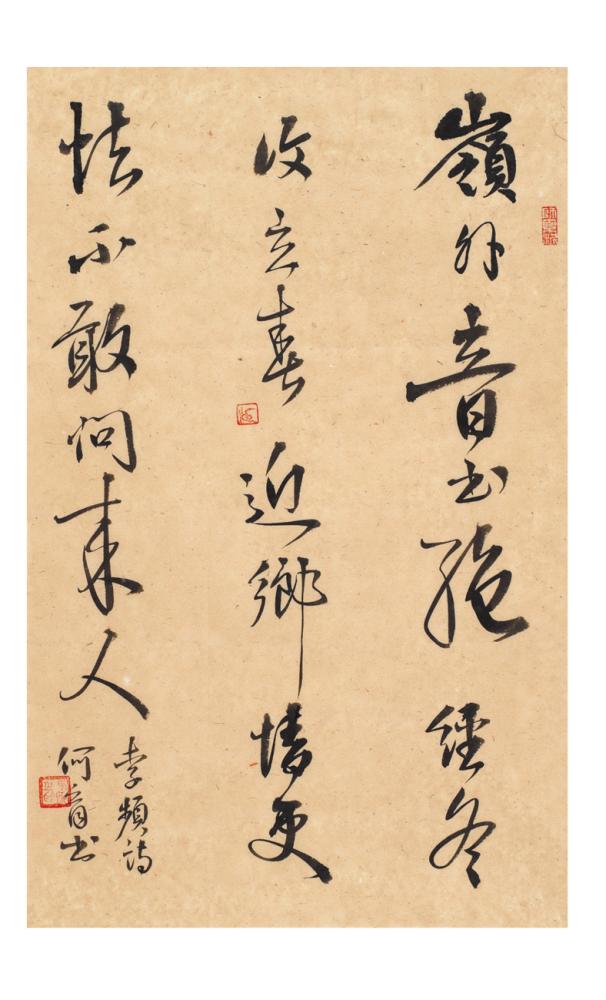 嶺外音書絕經冬
復立春近鄉情更
怯不敢問來人
李頻詩
何 書